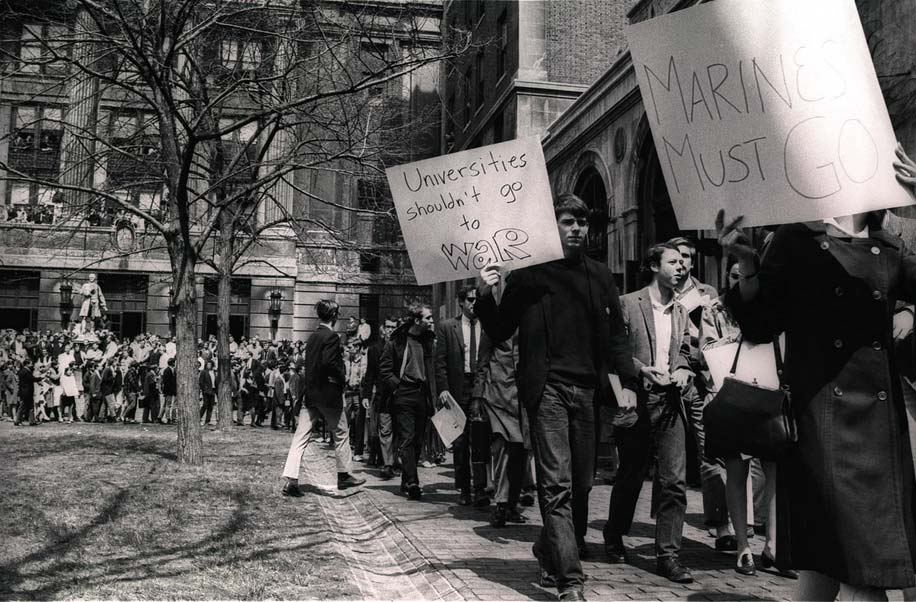 Universities
shouldn't go
to
WaR
MARINES
MUST GO